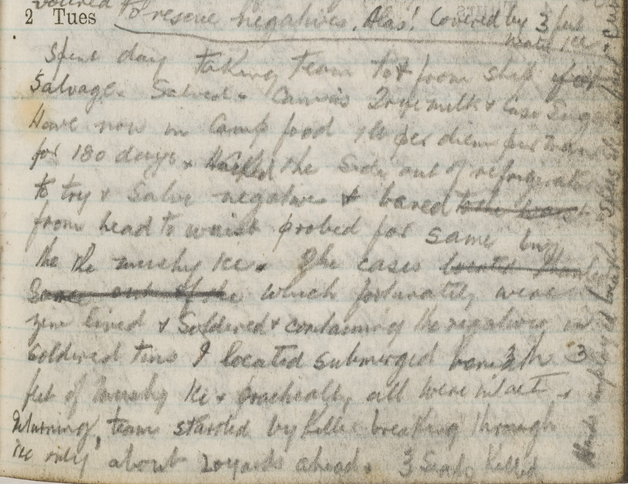 2 Tues
to rescue negatives. Alas! Covered by 3 feet
water Ice.
Spent day taking team to & from ship for
Salvage. Salved. Canvas 2 Drye milk & Case Sugar
Have now in Camp food 1 lb per diem per man
for 180 days. Hacked the side out of refrigerator
to try & Salve negatives & bared
from head to waist probed for same in
the the mushy Ice. The cases
which fortunately were
zinc lined & Soldered & containing the negatives in
soldered tins I located submerged beneath 3
feet of mushy Ice & practically all were intact.
Returning, team startled by Killer breaking through
ice only about 20 yards ahead. 3 Seals Killed